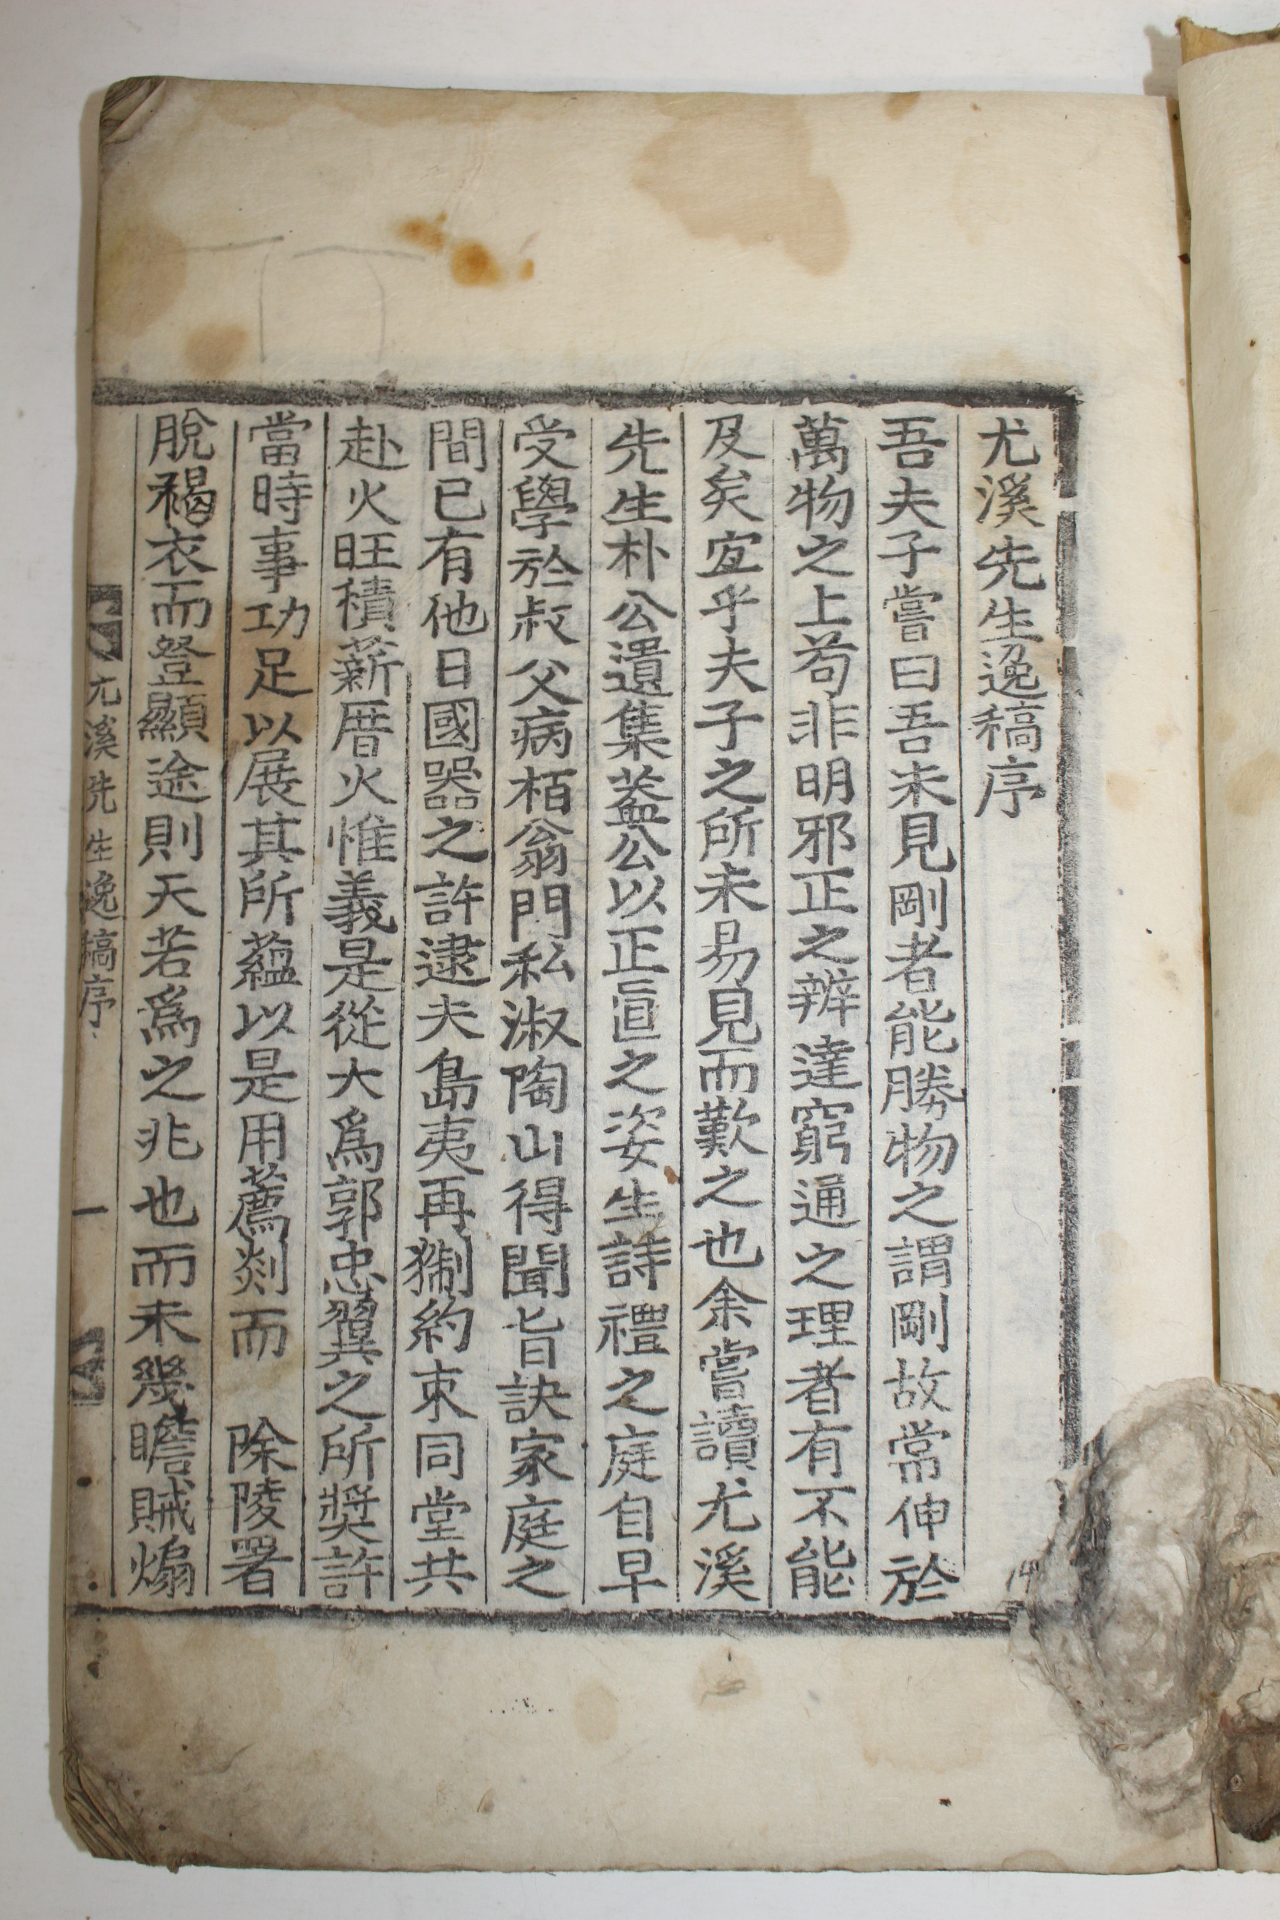 尤溪先生逸稿序
吾夫子嘗曰吾未見剛者能勝物之謂剛故常伸於
萬物之上苟非明邪正之辨達窮通之理者有不能
及矣宜乎夫子之所未易見而歎之也余嘗讀尤溪
先生朴公遺集盖公以正直之姿生詩禮之庭自早
受學於叔父病栢翁門私淑陶山得聞旨訣家庭之
間已有他日國器之許逮夫島夷再猘約束同堂共
赴火旺積薪厝火惟義是從大爲郭忠翼之所奬許
當時事功足以展其所蘊以是用薦剡而 除陵署
脫褐衣而登顯途則天若爲之兆也而未幾瞻賊煽
尤溪先生逸稿序 一